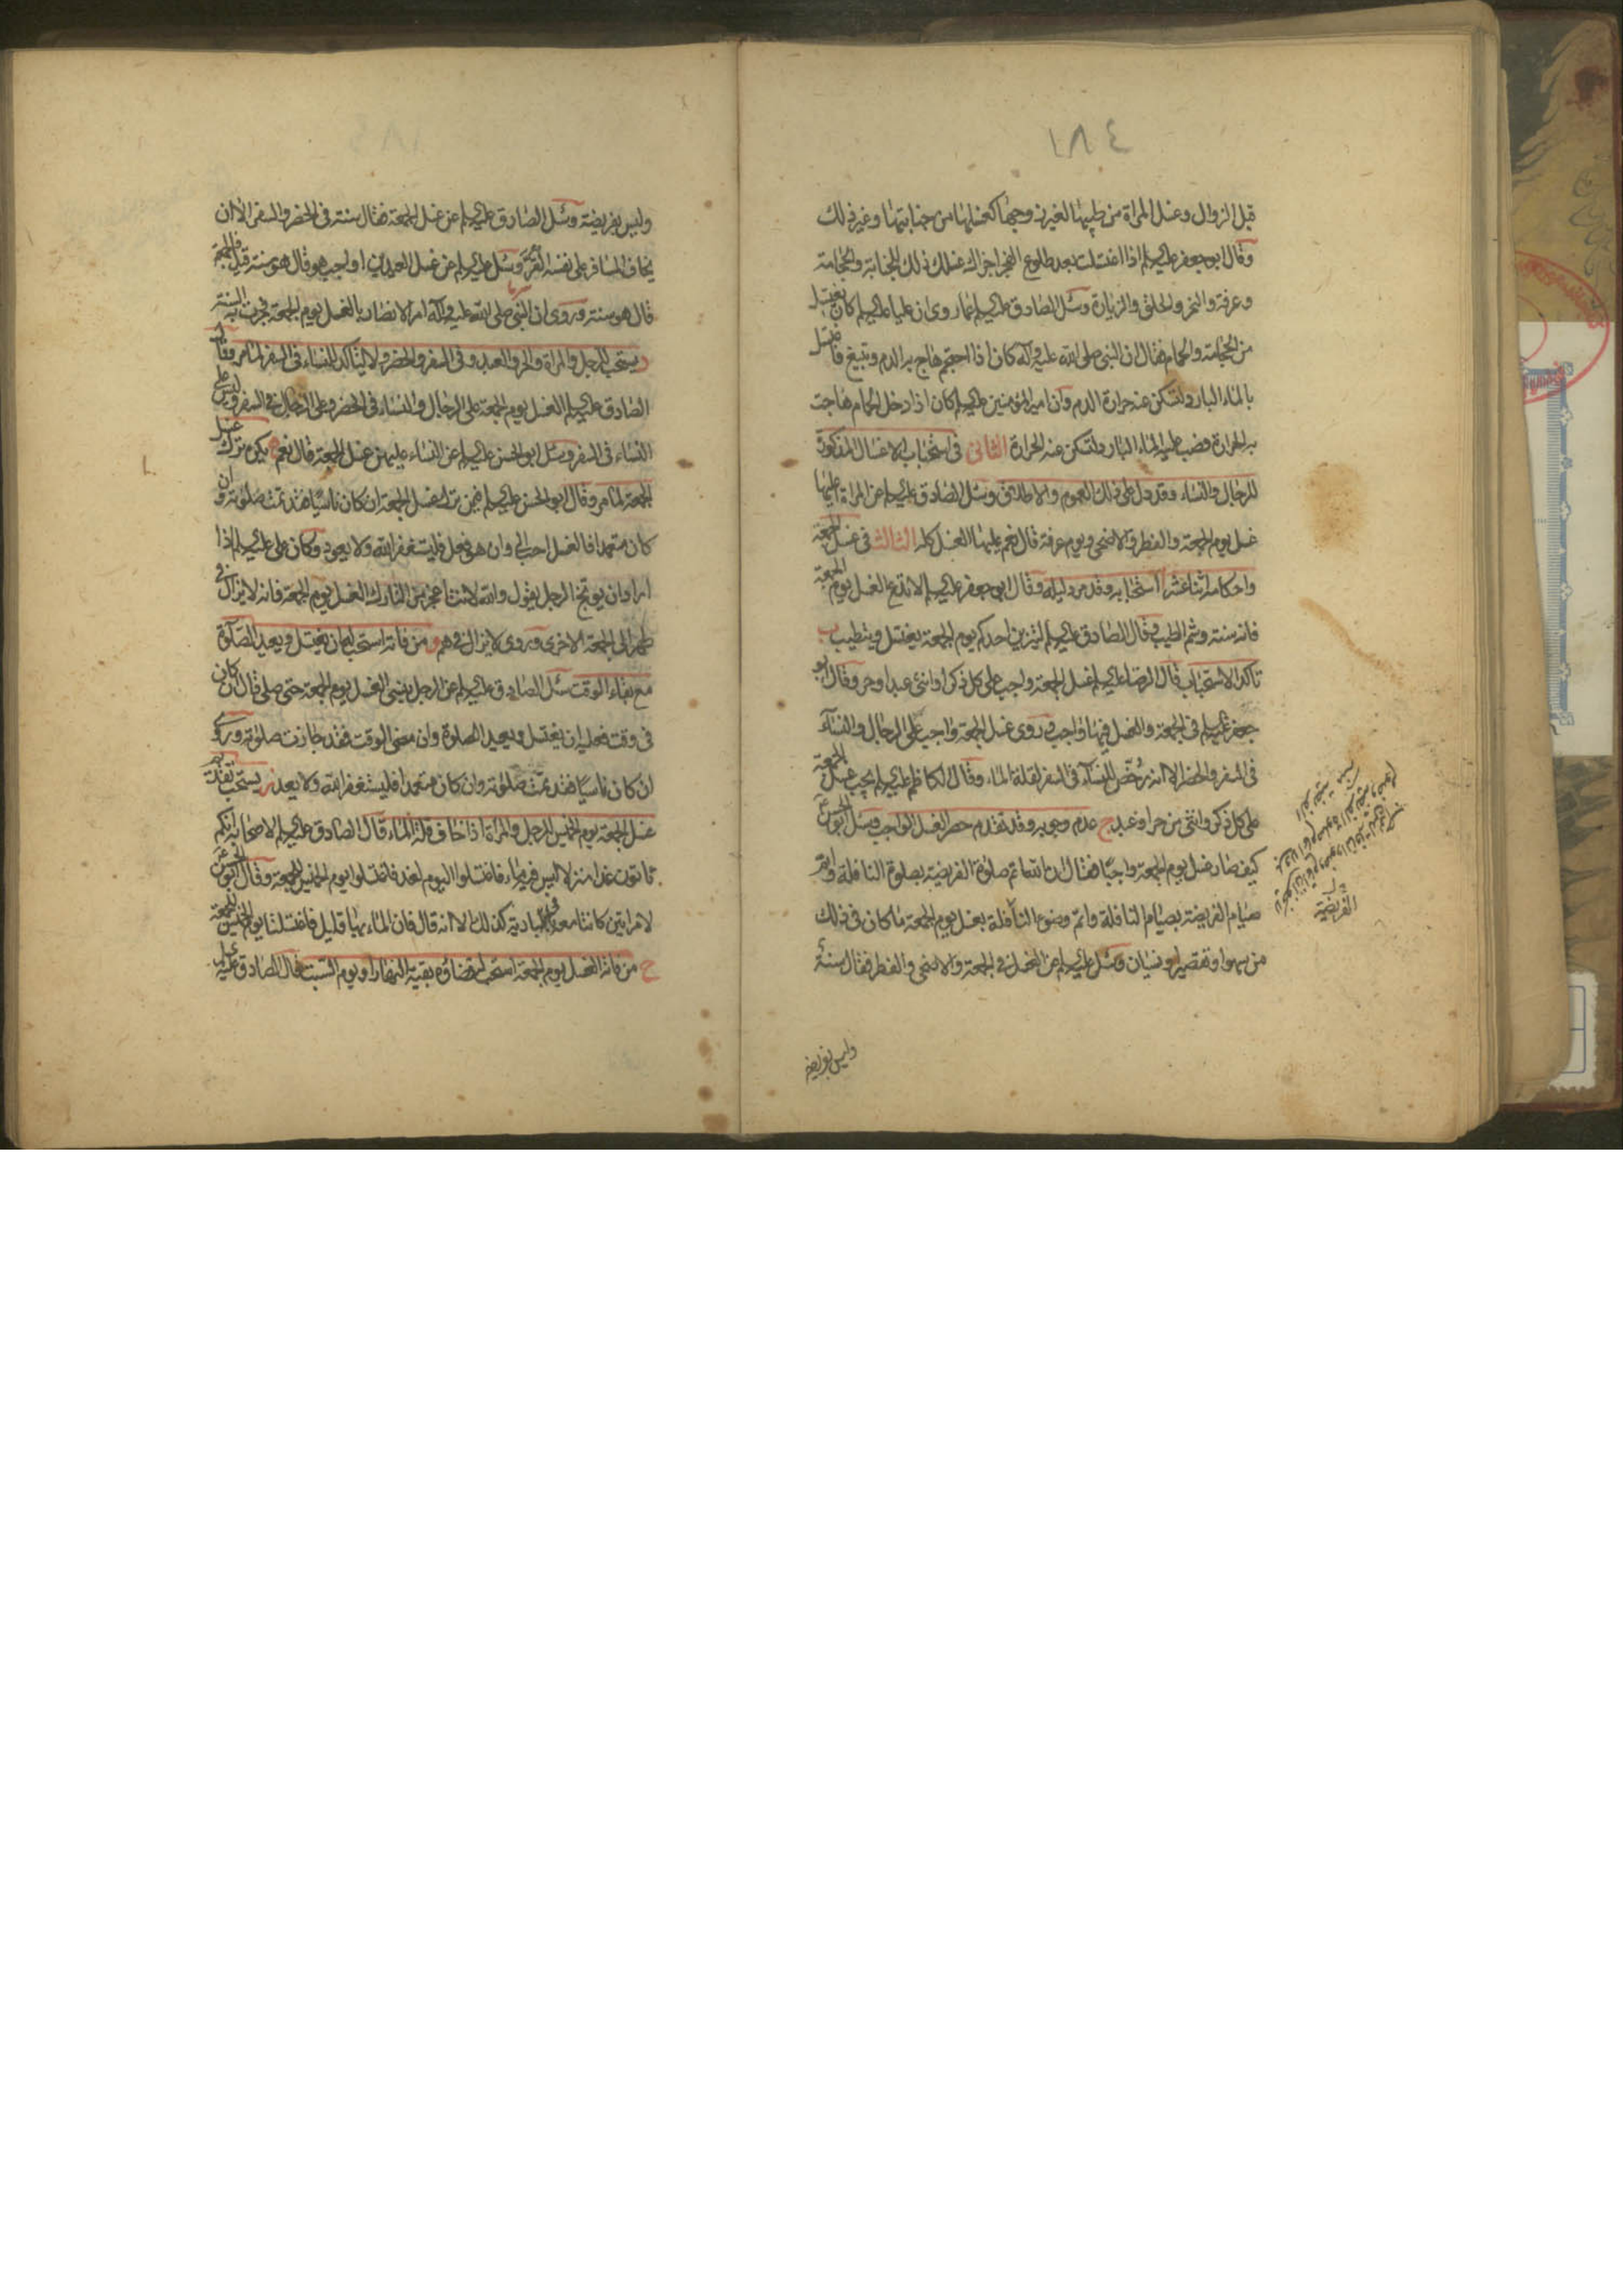 ١٨٤
قبل الزوال وغسل المراة من طيبها لغير زوجها كغسلها من جنابتها وغير ذلك
وقال ابو جعفر عليه السلم اذا اغتسلت بعد طلوع الفجر اجزاك غسلك ذلك للجنابة والحجامة
وعرفة والنحر والحلق والزيارة وسئل الصادق عليه السلم عما روى ان عليا عليه السلم كان يغتسل
من الحجامة والحمام فقال ان النبي صلى الله عليه وآله كان اذا احتجم هاج به الدم وتبيغ فاغتسل
بالماء البارد لتسكن عنه حرارة الدم وان امير المؤمنين عليه السلم كان اذا دخل الحمام هاجت
به الحرارة فصب عليه الماء البارد لتسكن عنه الحرارة الثانى فى استحباب الاغسال المذكورة
للرجال والنساء وقد دل على ذلك العموم والاطلاق وسئل الصادق عليه السلم عن المراة اعليها
غسل يوم الجمعة والفطر والاضحى ويوم عرفة قال نعم عليها الغسل كله الثالث فى غسل الجمعة
واحكامه اثنا عشر ا استحبابه وقد مر دليله وقال ابو جعفر عليه السلم لا تدع الغسل يوم الجمعة
فانه سنة وشم الطيب وقال الصادق عليه السلم ليتزين احدكم يوم الجمعة يغتسل ويتطيب ب
تاكد الاستحباب قال الرضا عليه السلم غسل الجمعة واجب على كل ذكر او انثى عبد او حر وقال ابو
جعفر عليه السلم فى الجمعة والغسل فيها واجب وروى غسل الجمعة واجب على الرجال والنساء
فى السفر والحضر الا انه رخص للنساء فى السفر لقلة الماء وقال الكاظم عليه السلم يجب غسل الجمعة
على كل ذكر وانثى من حر او عبد ج عدم وجوبه وقد تقدم حصر الغسل الواجب وسئل ابو الحسن ع
كيف صار غسل يوم الجمعة واجبا فقال ان الله اتم صلوة الفريضة بصلوة النافلة واتم
صيام الفريضة بصيام النافلة واتم وضوء النافلة بغسل يوم الجمعة ما كان فى ذلك
من سهو او تقصير او نسيان وسئل عليه السلم عن الغسل فى الجمعة والاضحى والفطر فقال سنة
وليس بفريضة
وليس بفريضة وسئل الصادق عليه السلم عن غسل الجمعة فقال سنة فى الحضر والسفر الا ان
يخاف المسافر على نفسه القر وسئل عليه السلم عن غسل العيدين اواجب هو قال هو سنة قيل فالجمعة
قال هو سنة وروى ان النبي صلى الله عليه وآله امر الانصار بالغسل يوم الجمعة فجرت به السنة
د يستحب للرجل والمراة والحر والعبد وفى السفر والحضر ولا يتاكد للنساء فى السفر لما مر وقال
الصادق عليه السلم الغسل يوم الجمعة على الرجال والنساء فى الحضر وعلى الرجال فى السفر وليس على
النساء فى السفر وسئل ابو الحسن عليه السلم عن النساء عليهن غسل الجمعة قال نعم ه يكره ترك غسل
الجمعة لما مر وقال ابو الحسن عليه السلم فيمن ترك غسل الجمعة ان كان ناسيا فقد تمت صلوته وان
كان متعمدا فالغسل احب الى وان هو فعل فليستغفر الله ولا يعود وكان على عليه السلم اذا
اراد ان يوبخ الرجل يقول والله لانت اعجز من التارك الغسل يوم الجمعة فانه لا يزال فى
طهر الى الجمعة الاخرى وروى لا يزال فى هم و من فاته استحب له ان يغتسل ويعيد الصلوة
مع بقاء الوقت سئل الصادق عليه السلم عن الرجل ينسى الغسل يوم الجمعة حتى صلى قال ان كان
فى وقت فعليه ان يغتسل ويعيد الصلوة وان مضى الوقت فقد جازت صلوته وروى
ان كان ناسيا فقد تمت صلوته وان كان متعمدا فليستغفر الله ولا يعد ز يستحب تقديم
غسل الجمعة يوم الخميس للرجل والمراة اذا خاف قلة الماء قال الصادق عليه السلم لاصحابه انكم
تاتون غدا منزلا ليس فيه ماء فاغتسلوا اليوم لغد فاغتسلوا يوم الخميس للجمعة وقال ابو الحسن ع
لامراتين كانتا معه فى البادية كذلك الا انه قال فان الماء بها قليل فاغتسلنا يوم الخميس للجمعة
ح من فاته الغسل يوم الجمعة استحب له قضاؤه بقية النهار او يوم السبت قال الصادق عليه السلم